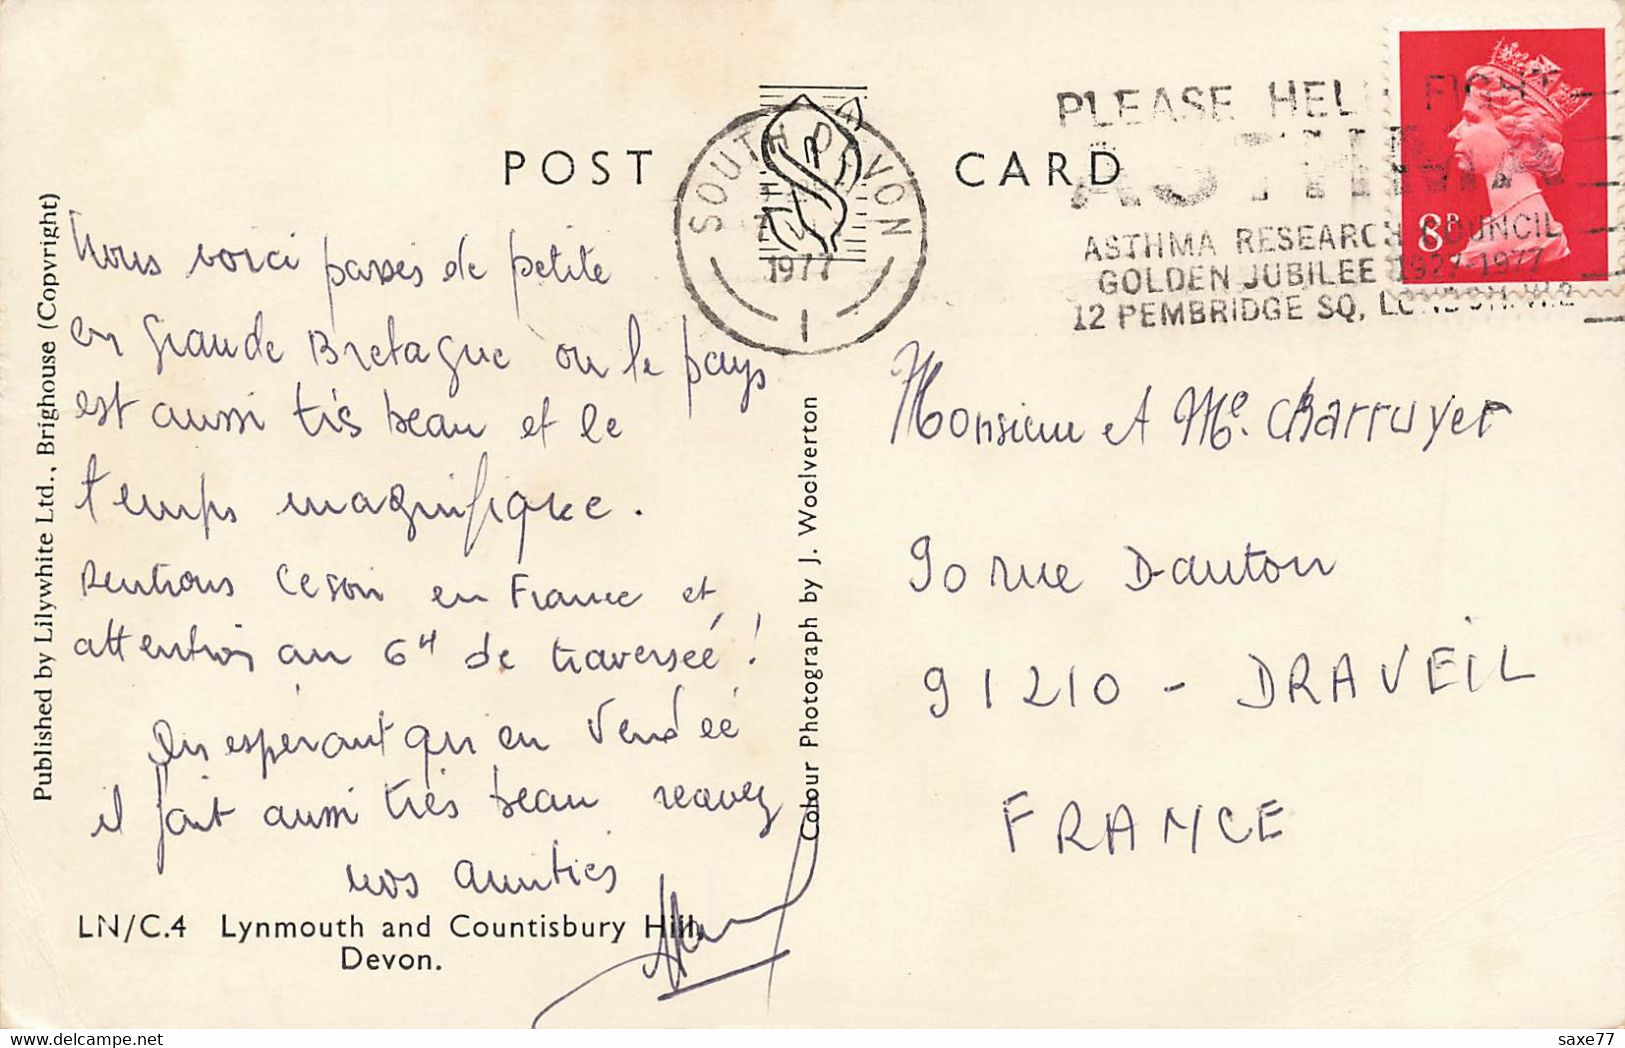 POST CARD
SOUTH DEVON
1977
1
PLEASE HELP FIGHT
ASTHMA
ASTHMA RESEARCH COUNCIL
GOLDEN JUBILEE 1927-1977
12 PEMBRIDGE SQ, LONDON W.2
8P
Published by Lilywhite Ltd., Brighouse (Copyright)
Nous voici passés de petite
en grande Bretagne ou le pays
est aussi très beau et le
temps magnifique.
Rentrons ce soir en France et
attention au 6H de traversée !
En espérant qu'en Vendée
il fait aussi très beau recevez
nos amitiés
LN/C.4 Lynmouth and Countisbury Hill,
Devon.
Colour Photograph by J. Woolverton
Monsieur et Me. Charruyer
90 rue Danton
91210 - DRAVEIL
FRANCE
saxe77